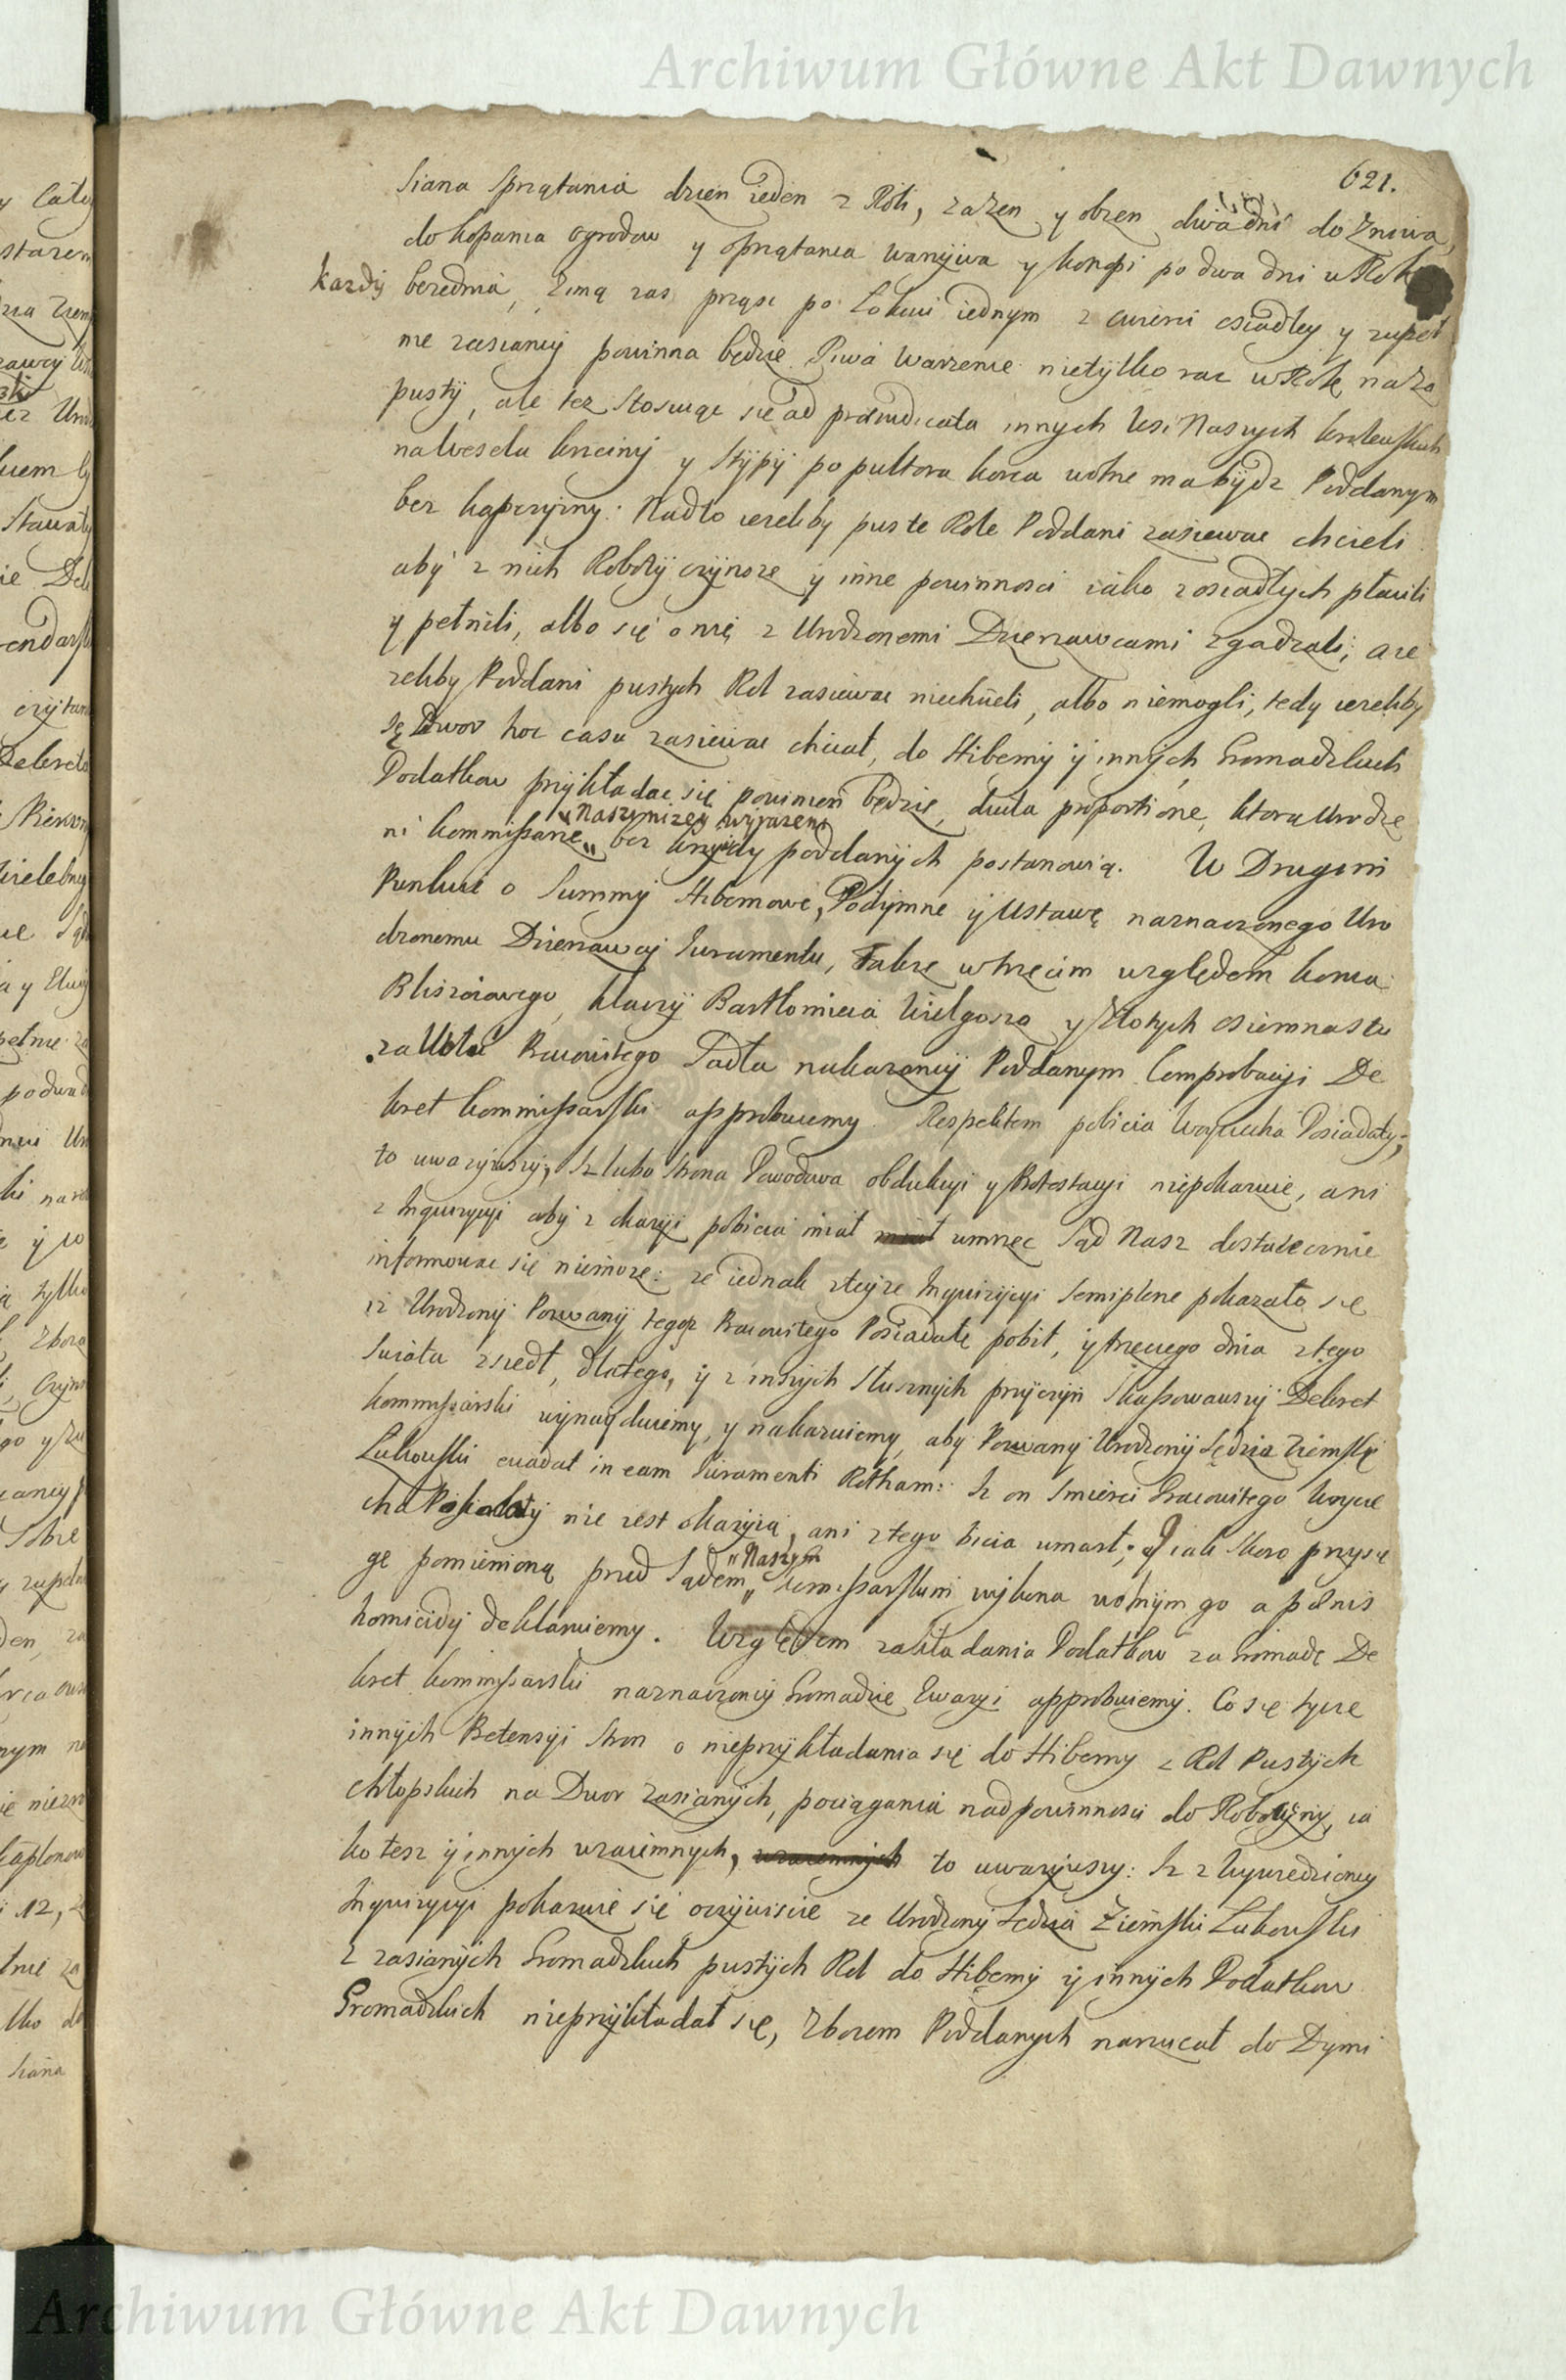 Archiwum Główne Akt Dawnych
621.
Siana sprzątania dzien ieden z Roli, zazen y obzen dwa dni do Zniwa,
do kopania ogrodow y sprzątania warzywa y konopi po dwa dni w Rok
każdy bezednia, Zimą zas prząsc po Łokciu iednym z cwierci osiadłey y zupeł
nie zasianey powinna będzie. Piwa warzenie nietylko raz w Rok na Za
pusty, ale tez stosuiąc się ad praeiudicata innych Wsi Naszych krolewskich
na Wesela krzciny y Stypy po pultora korca wolne ma bydz Poddanym
bez kapczyzny: Nadto iezeliby puste Role Poddani zasiewac chcieli
aby z nich Roboty czynsze y inne powinnosci iako z osiadłych płacili
y pełnili, albo się o nię z Urodzonemi Dzierzawcami zgadzali; a ie
zeliby Poddani pustych Rol zasiewac niechcieli, albo niemogli, tedy iezeliby
ię Dwor hoc casu zasiewac chciał, do Hiberny y innych Gromadzkich
Podatkow przykładac się powinien będzie, iuxta proportione, ktorą Urodze
ni kommissarze „Naszym wyrazeni„ bez krzywdy poddanych postanowią. W Drugim
Punkcie o Summy Hibernowe, Podymne y Ustawę naznaczonego Uro
dzonemu Dzierzawcy Juramentu, Także w trzecim względem konia
Blizniowego, klaczy Bartłomieia Wielgosza y Złotych osiemnastu
za Wołu Pracowitego Sadła nakazaney Poddanym Comprobacyi De
kret kommissarski approbuiemy. Respektem pobicia Woyciecha Posiadały;
to uwazywszy, Iz lubo strona Powodowa obdukcyi y Protestacyi niepokazuie, ani
z Inquizycyi aby z okazyi pobicia miał umrzec Sąd Nasz dostatecznie
informowac się niemoze: ze iednak z teyze Inquizycyi semiplene pokazało się
iz Urodzony Pozwany tegoz Pracowitego Posiadałę pobił, y trzeciego dnia z tego
Swiata zszedł, dlatego, y z innych słusznych przyczyn skassowawszy Dekret
kommissarski wynayduiemy, y nakazuiemy, aby Pozwany Urodzony Sędzia Ziemski
Łukowski evadat in eam Juramenti Rotham: Iz on smierci Pracowitego Woycie
cha Posiadały nie iest okazyią, ani z tego bicia umarł; A iak skoro przysię
gę pomienioną przed Sądem „Naszym„ kommissarskim wykona wolnym go a pœnis
homicidij deklaruiemy. Względem zakładania Podatkow za Gromadę De
kret kommissarski naznaczoney Gromadzie Ewazyi approbuiemy. Co się tycze
innych Pretensyi stron o nieprzykładania się do Hiberny z Rol Pustych
chłopskich na Dwor zasianych, pociągania nad powinnosci do Robocizny, ia
ko tesz y innych wzaiemnych, to uwazywszy: Iz z Wywiedzioney
Inquizycyi pokazuie się oczywiscie ze Urodzony Sędzia Ziemski Łukowski
z zasianych Gromadzkich pustych Rol do Hiberny y innych Podatkow
Gromadzkich nieprzykładał się, Zbozem Poddanych narzucał do Dymi
Archiwum Główne Akt Dawnych